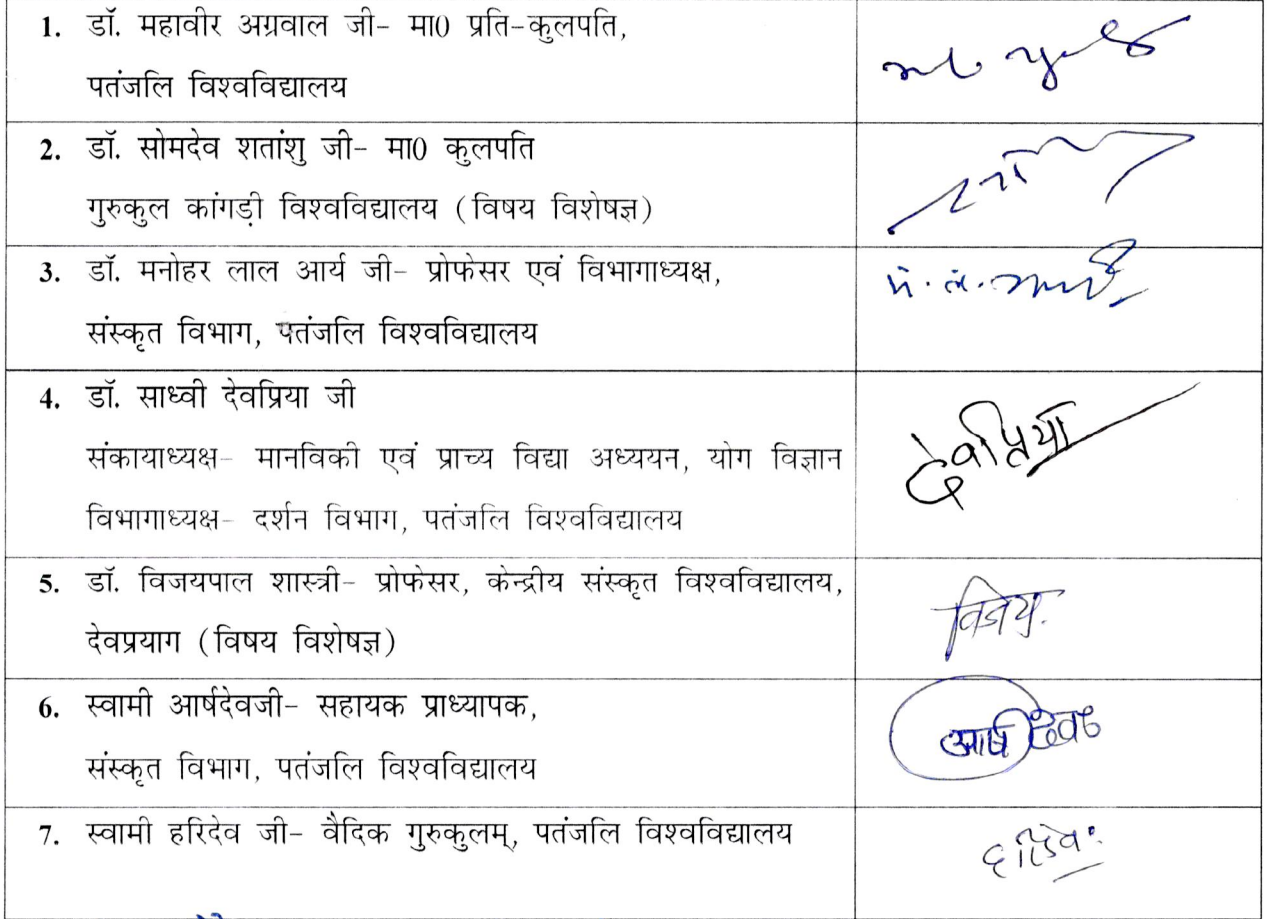 1. डॉ. महावीर अग्रवाल जी- मा0 प्रति-कुलपति,
पतंजलि विश्वविद्यालय
2. डॉ. सोमदेव शतांशु जी- मा0 कुलपति
गुरुकुल कांगड़ी विश्वविद्यालय (विषय विशेषज्ञ)
3. डॉ. मनोहर लाल आर्य जी- प्रोफेसर एवं विभागाध्यक्ष,
संस्कृत विभाग, पतंजलि विश्वविद्यालय
4. डॉ. साध्वी देवप्रिया जी
संकायाध्यक्ष- मानविकी एवं प्राच्य विद्या अध्ययन, योग विज्ञान
देवप्रिया
विभागाध्यक्ष- दर्शन विभाग, पतंजलि विश्वविद्यालय
5. डॉ. विजयपाल शास्त्री- प्रोफेसर, केन्द्रीय संस्कृत विश्वविद्यालय,
विजय
देवप्रयाग (विषय विशेषज्ञ)
6. स्वामी आर्षदेवजी- सहायक प्राध्यापक,
आर्ष देवः
संस्कृत विभाग, पतंजलि विश्वविद्यालय
7. स्वामी हरिदेव जी- वैदिक गुरुकुलम्, पतंजलि विश्वविद्यालय
हरिदेवः